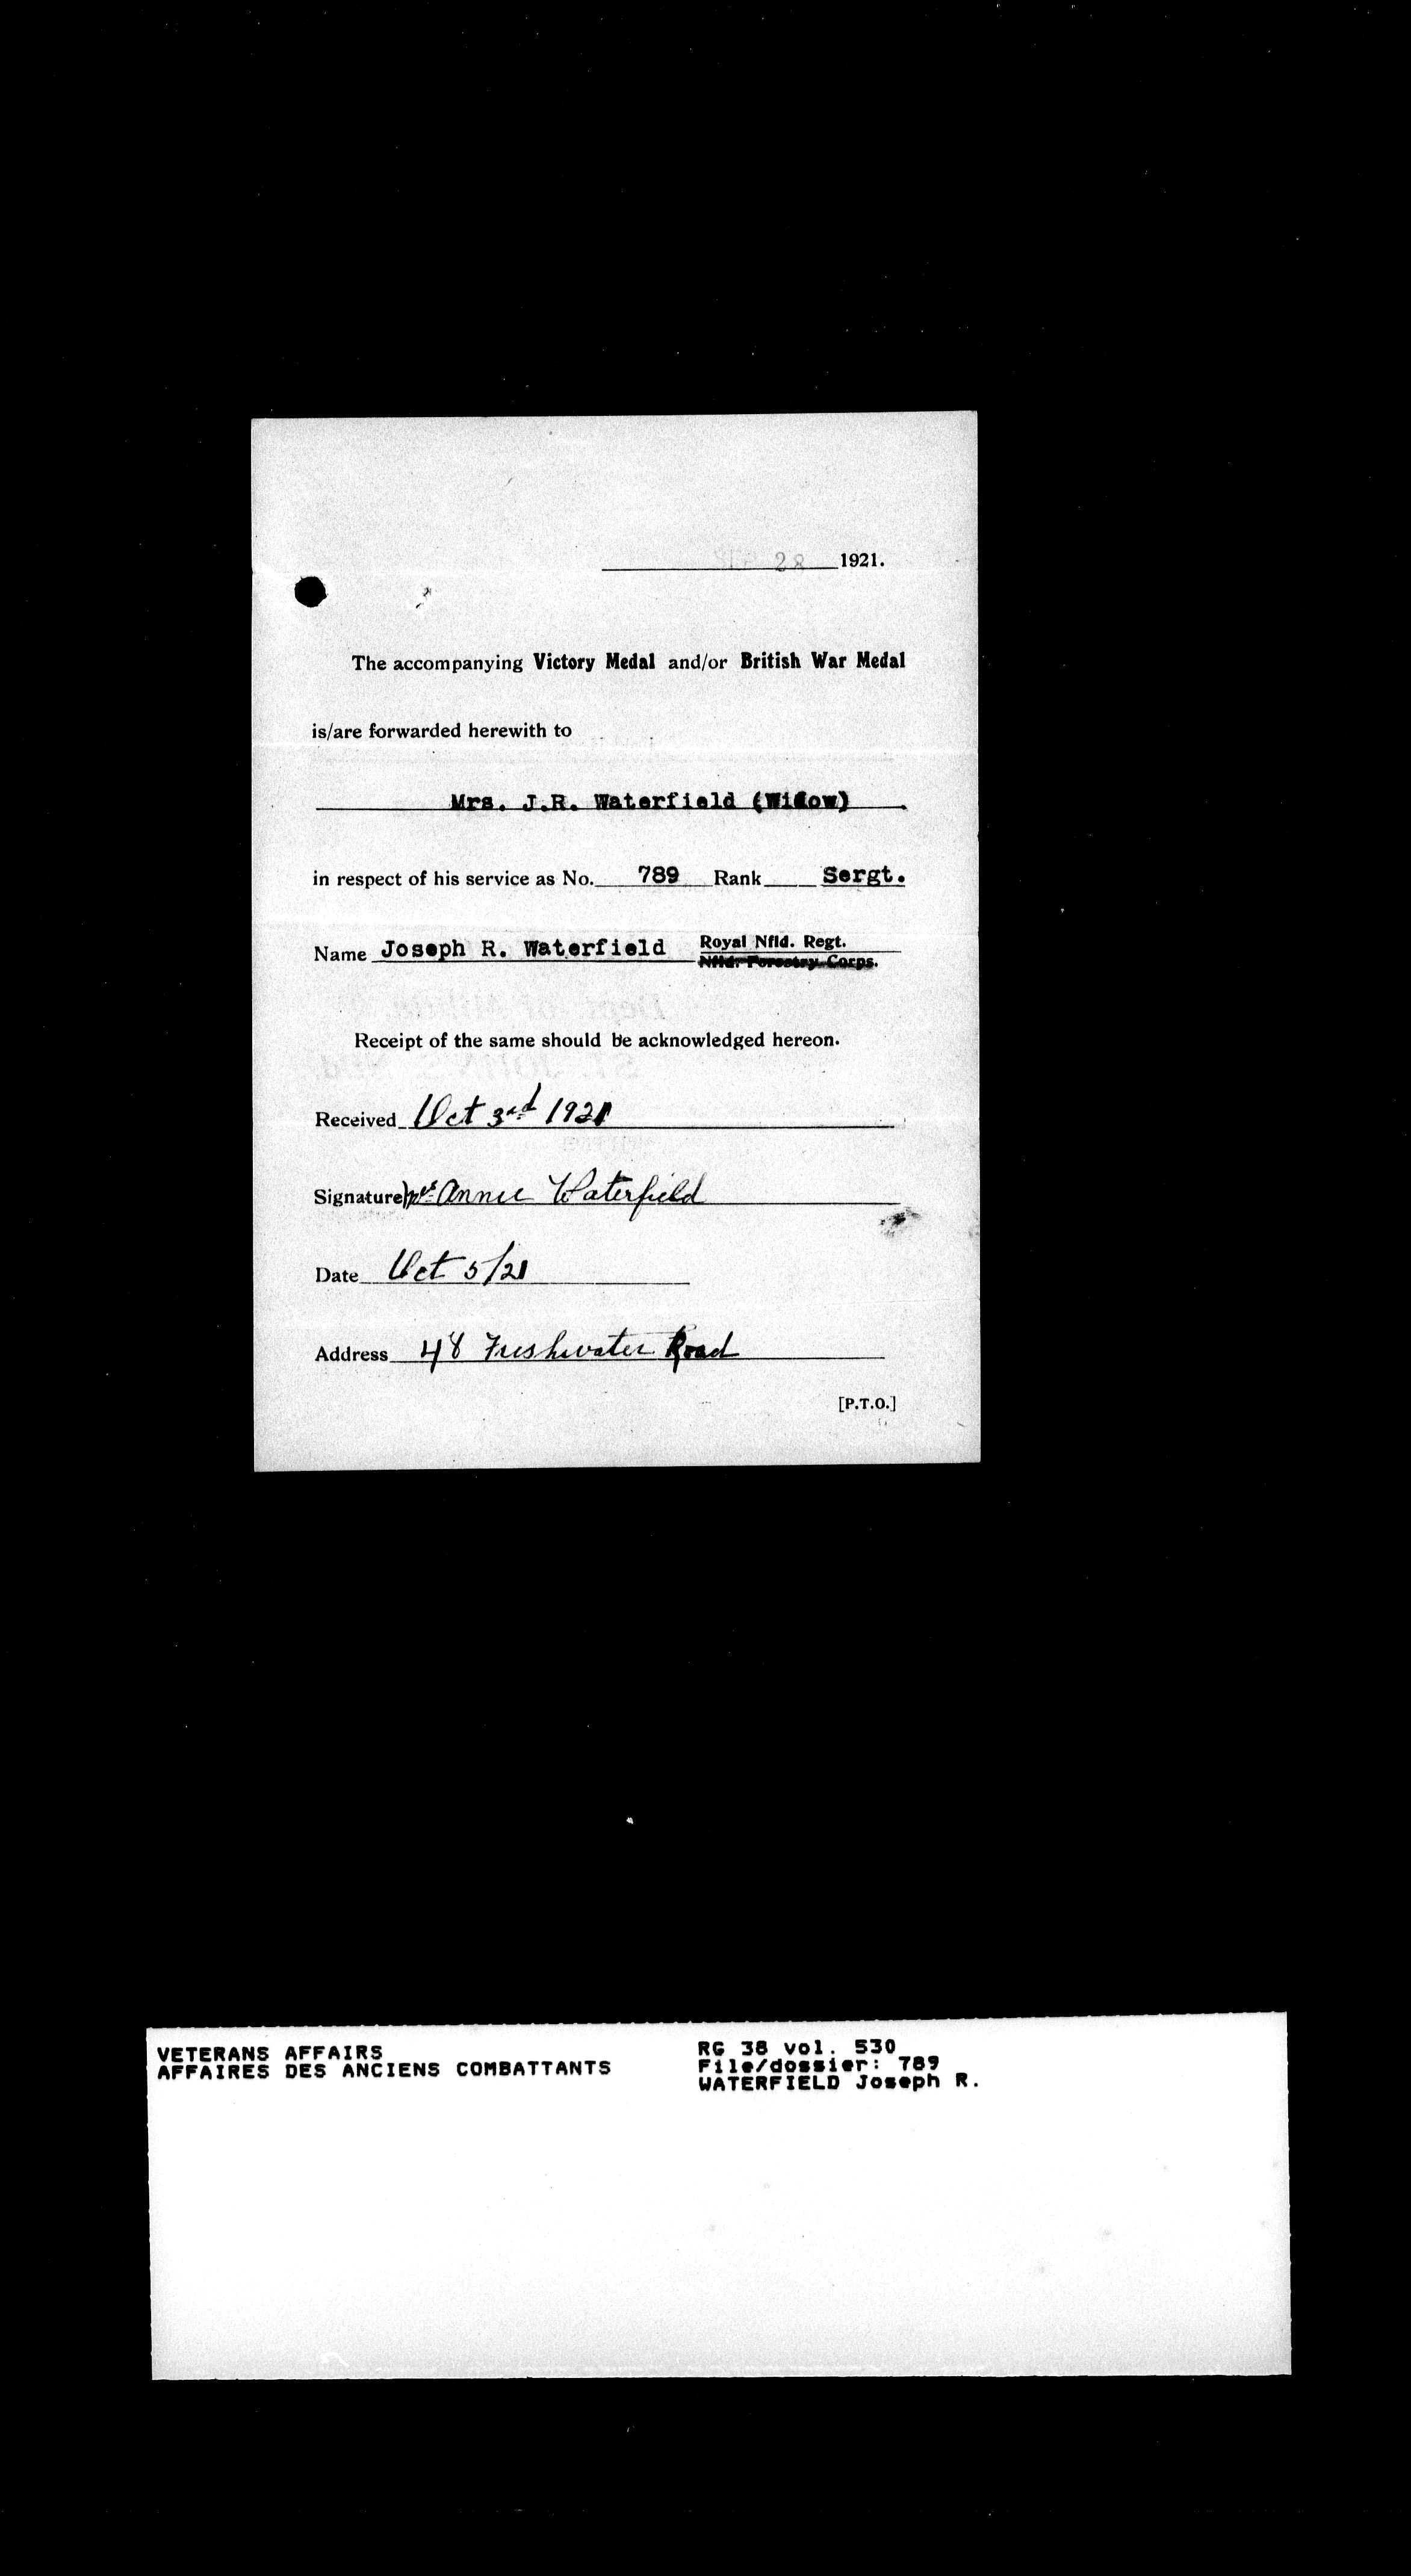 28 1921.
The accompanying Victory Medal and/or British War Medal
is/are forwarded herewith to
Mrs. J.R. Waterfield (Widow).
in respect of his service as No. 789 Rank Sergt.
Name Joseph R. Waterfield Royal Nfld. Regt.
Nfld. Forestry Corps.
Receipt of the same should be acknowledged hereon.
Received Oct 3rd 1921
Signature Mrs Annie Waterfield
Date Oct 5/21
Address 48 Freshwater Road
[P.T.O.]
VETERANS AFFAIRS
AFFAIRES DES ANCIENS COMBATTANTS
RG 38 vol. 530
File/dossier: 789
WATERFIELD Joseph R.